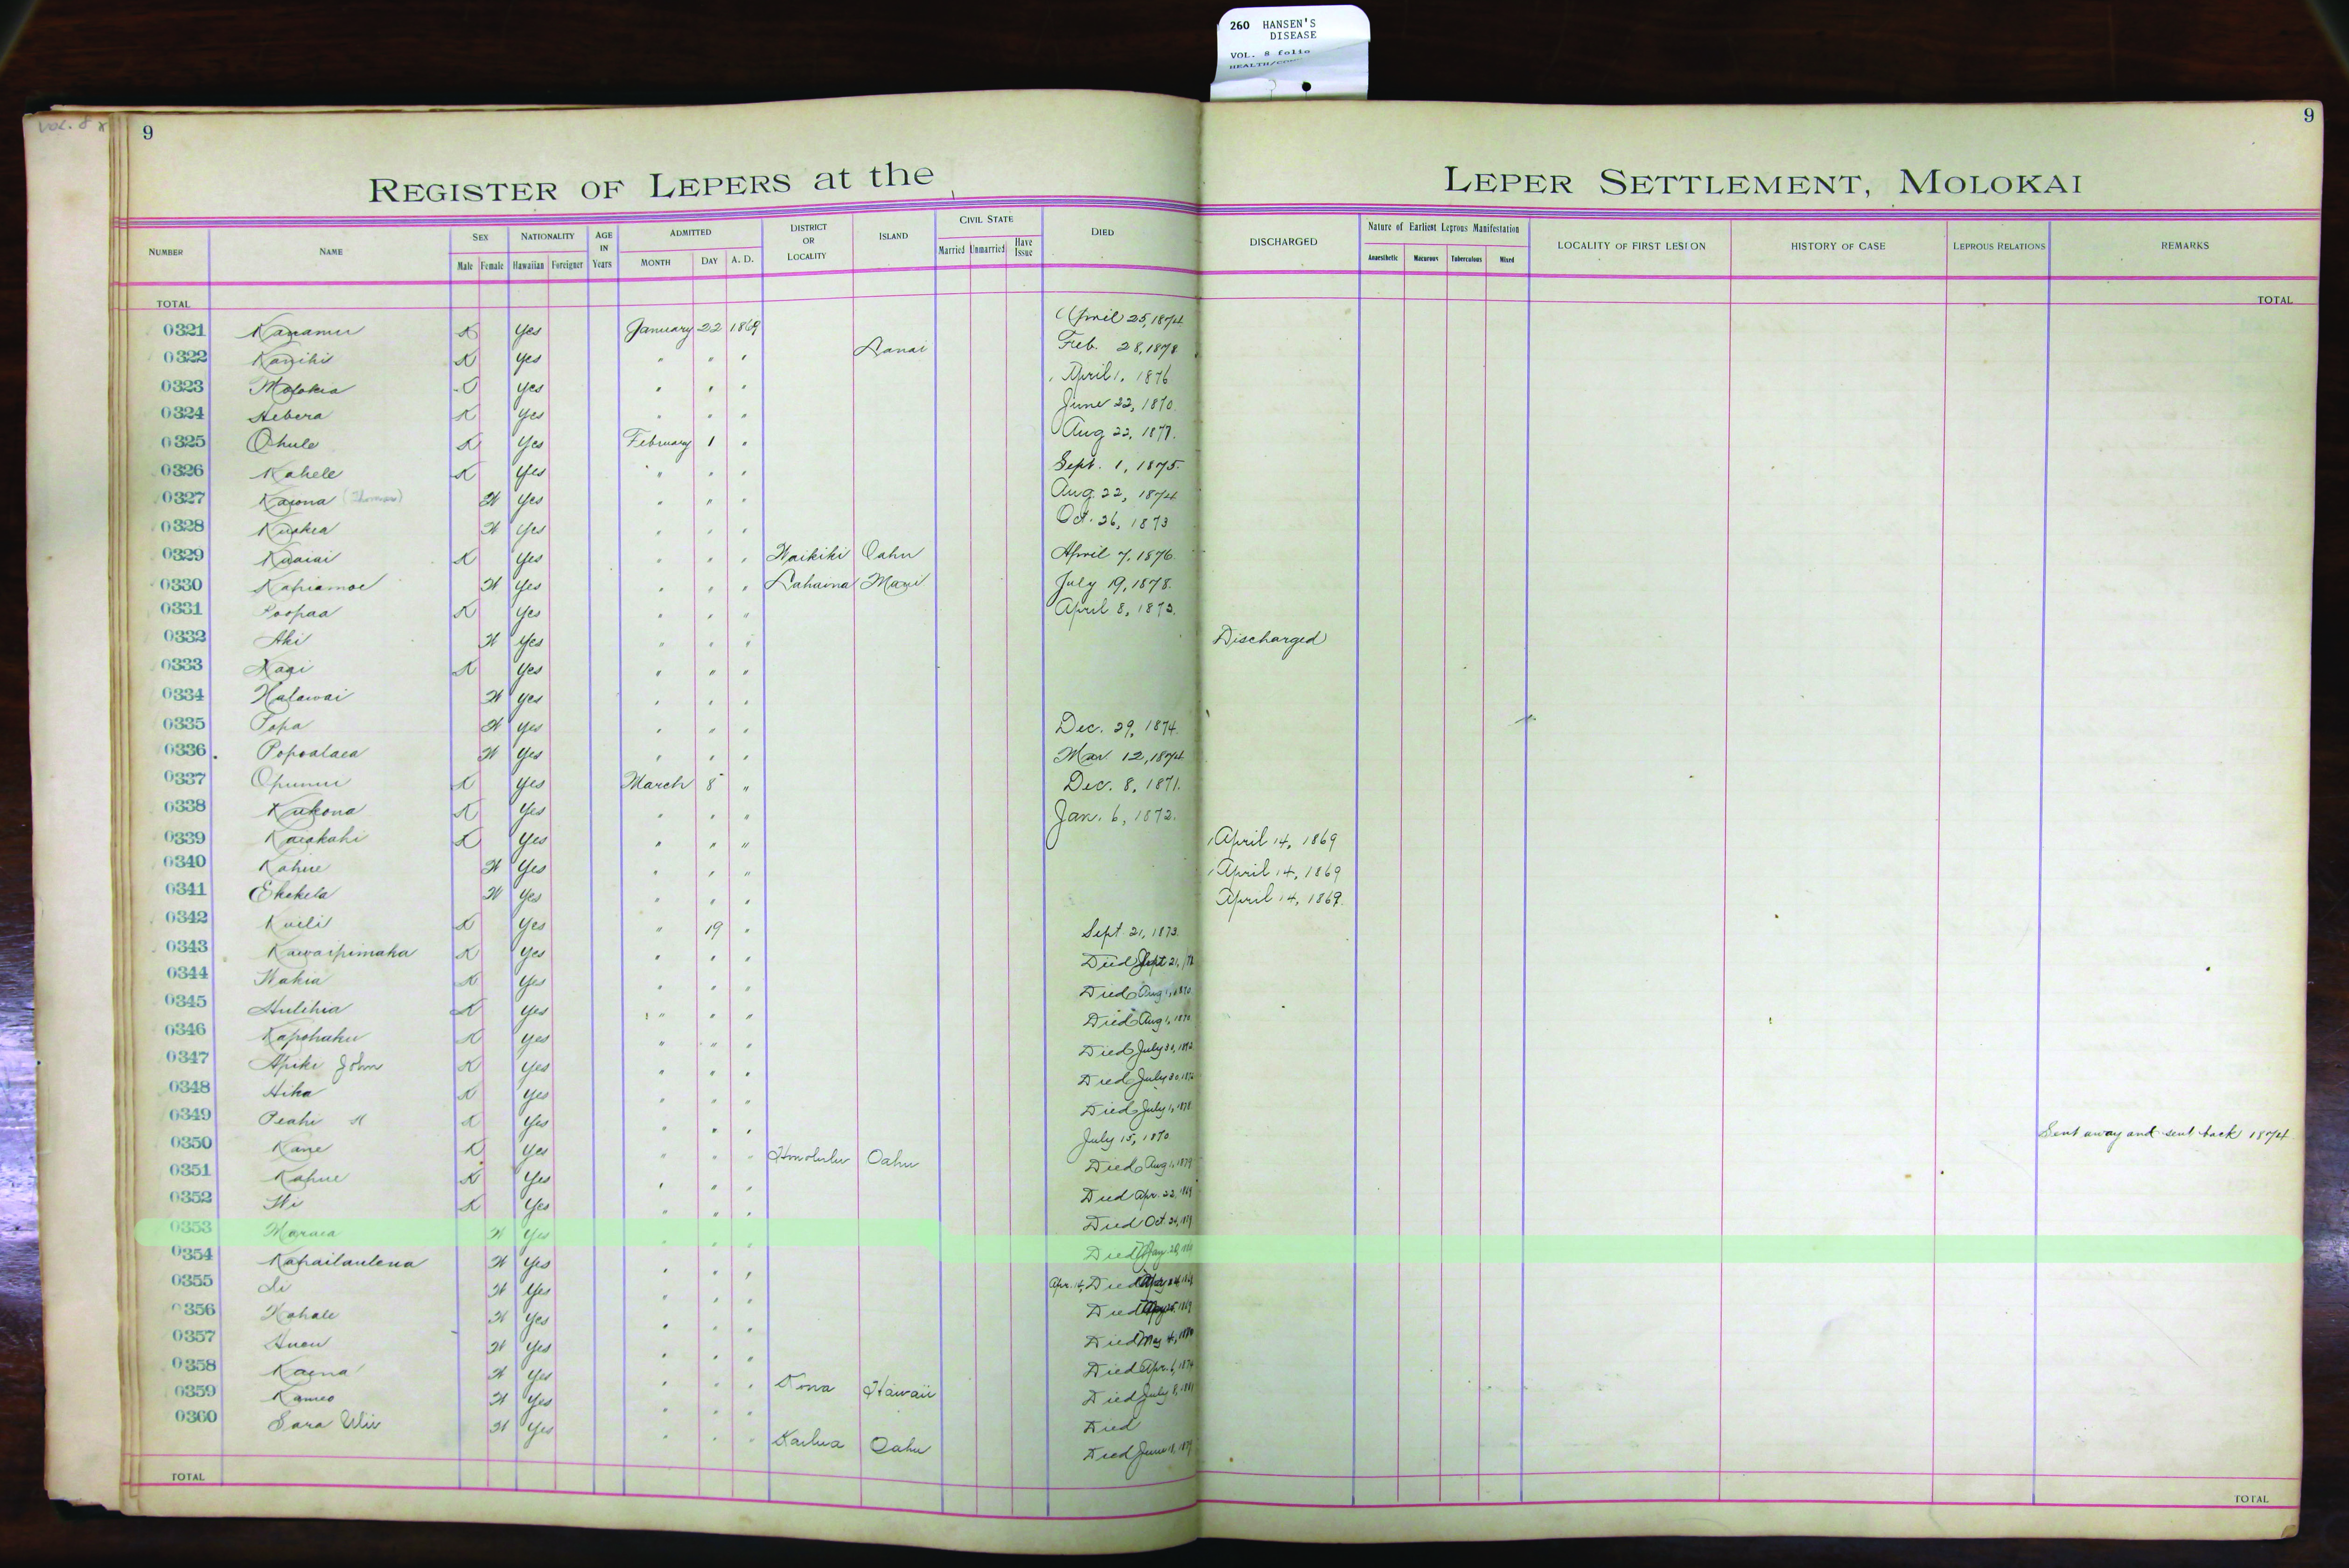 260 HANSEN'S
DISEASE
VOL. 8 folio
VOL. 8
9
9
REGISTER OF LEPERS at the LEPER SETTLEMENT, MOLOKAI
NUMBER NAME SEX Male Female NATIONALITY Hawaiian Foreigner AGE IN Years ADMITTED MONTH DAY A. D. DISTRICT OR LOCALITY ISLAND CIVIL STATE Married Unmarried Have Issue DIED DISCHARGED Nature of Earliest Leprous Manifestation Anaesthetic Macurous Tuberculous Mixed LOCALITY OF FIRST LESION HISTORY OF CASE LEPROUS RELATIONS REMARKS
TOTAL TOTAL
0321 Kanamu K Yes January 22 1869 April 25, 1874
0322 Kanihi K Yes " " " Lanai Feb. 28, 1878
0323 Molokia Yes " " " April 1, 1876
0324 Hebera K Yes " " " June 22, 1870
0325 Ohule K Yes February 1 " Aug 22, 1877
0326 Kahele K Yes " " " Sept. 1, 1875
0327 Kaiona (Thomas) W Yes " " " Aug. 22, 1874
0328 W Yes " " " Oct. 26, 1873
0329 Kuaiai K Yes " " " Waikiki Oahu April 7, 1876
0330 Kapiamoe W Yes " " " Lahaina Maui July 19, 1878
0331 Poopaa K Yes " " " April 8, 1873
0332 Aki W Yes " " " Discharged
0333 K Yes " " "
0334 Halawai W Yes " " "
0335 Popa W Yes " " " Dec. 29, 1874
0336 Popoalaea W Yes " " " Mar 12, 1874
0337 Opunui K Yes March 8 " Dec. 8, 1871
0338 Kukona K Yes " " " Jan. 6, 1872
0339 Kaiakahi K Yes " " " April 14, 1869
0340 Kahue W Yes " " " April 14, 1869
0341 Ekekela W Yes " " " April 14, 1869
0342 Kuili K Yes " 19 " Sept. 21, 1873
0343 Kawaipimaka K Yes " " " Died Sept 21,
0344 Wakia K Yes " " " Died Aug 1, 1870
0345 Hulihia K Yes " " " Died Aug 1, 1870
0346 Kapohaku K Yes " " " Died July 30, 1872
0347 Apiki John K Yes " " " Died July 30, 1872
0348 Hika K Yes " " " Died July 1, 1878
0349 Peahi K Yes " " " July 15, 1870 Sent away and sent back 1874
0350 Kane K Yes " " " Honolulu Oahu Died Aug 1, 1879
0351 Kahue K Yes " " " Died Apr. 22, 1869
0352 K Yes " " " Died Oct. 24,
0353 Maraea W Yes " " " Died
0354 Kapailaulena W Yes " " " Apr. 14, Died
0355 Li W Yes " " " Died
0356 Kahale W Yes " " " Died May 4, 1880
0357 W Yes " " " Died Apr. 6, 1874
0358 Kaena W Yes " " " Kona Hawaii Died July 8, 1881
0359 Kameo W Yes " " " Died
0360 Sara W Yes " " " Kailua Oahu Died June
TOTAL TOTAL